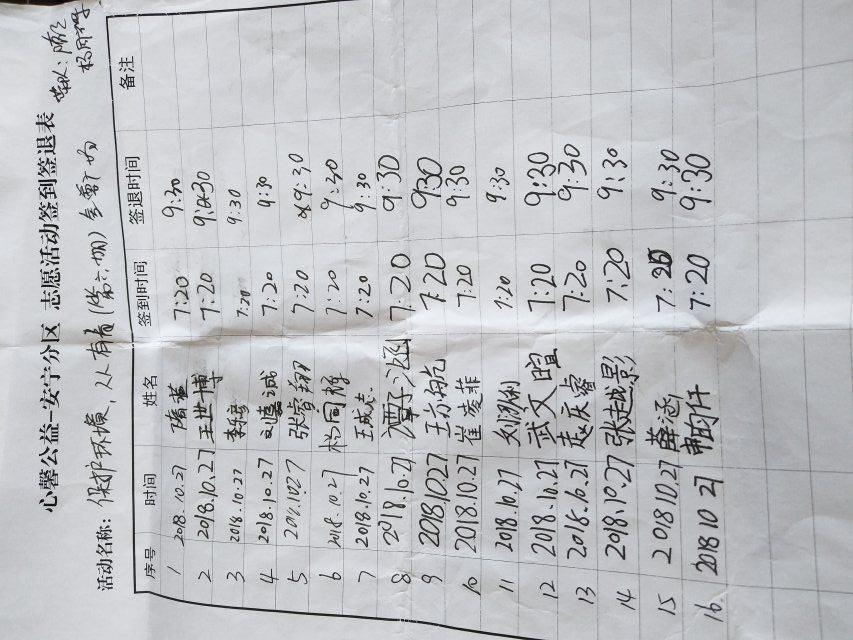 心馨公益-安宁分区 志愿活动签到签退表
活动名称: 保护环境,从有着(第六期)
序号 时间 姓名 签到时间 签退时间 备注
1 2018.10.27 7:20 9:30
2 2018.10.27 王世博 7:20 9:30
3 2018.10.27 7:20 9:30
4 2018.10.27 刘嘉诚 7:20 9:30
5 2018.10.27 张睿翔 7:20 9:30
6 2018.10.27 7:20 9:30
7 2018.10.27 王成志 7:20 9:30
8 2018.10.27 7:20 9:30
9 2018.10.27 7:20 9:30
10 2018.10.27 崔菱菲 7:20 9:30
11 2018.10.27 7:20 9:30
12 2018.10.27 武文暄 7:20 9:30
13 2018.10.27 赵庆睿 7:20 9:30
14 2018.10.27 张越影 7:20 9:30
15 2018.10.27 薛涵 7:20 9:30
16 2018 10 27 7:20 9:30